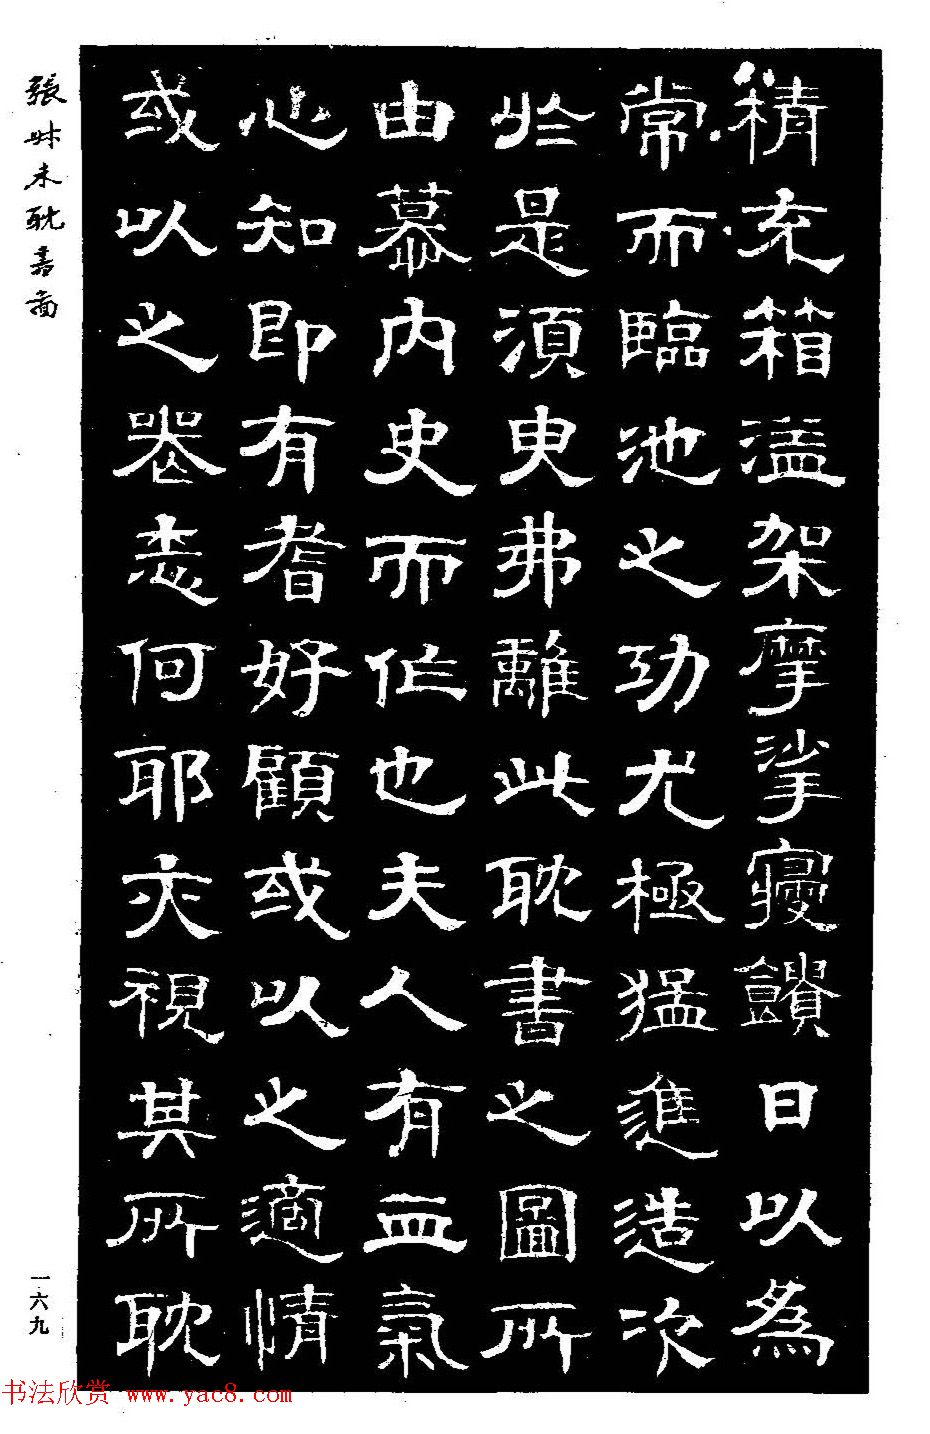 精充箱溢架摩挲寢饋日以為
常而臨池之功尤極猛進造次
於是須臾弗離此耽書之圖所
由慕内史而作也夫人有血氣
心知即有耆好顧或以之適情
或以之喪志何耶亦視其所耽
張尗未耽書圖
一六九
书法欣赏 www.yac8.com